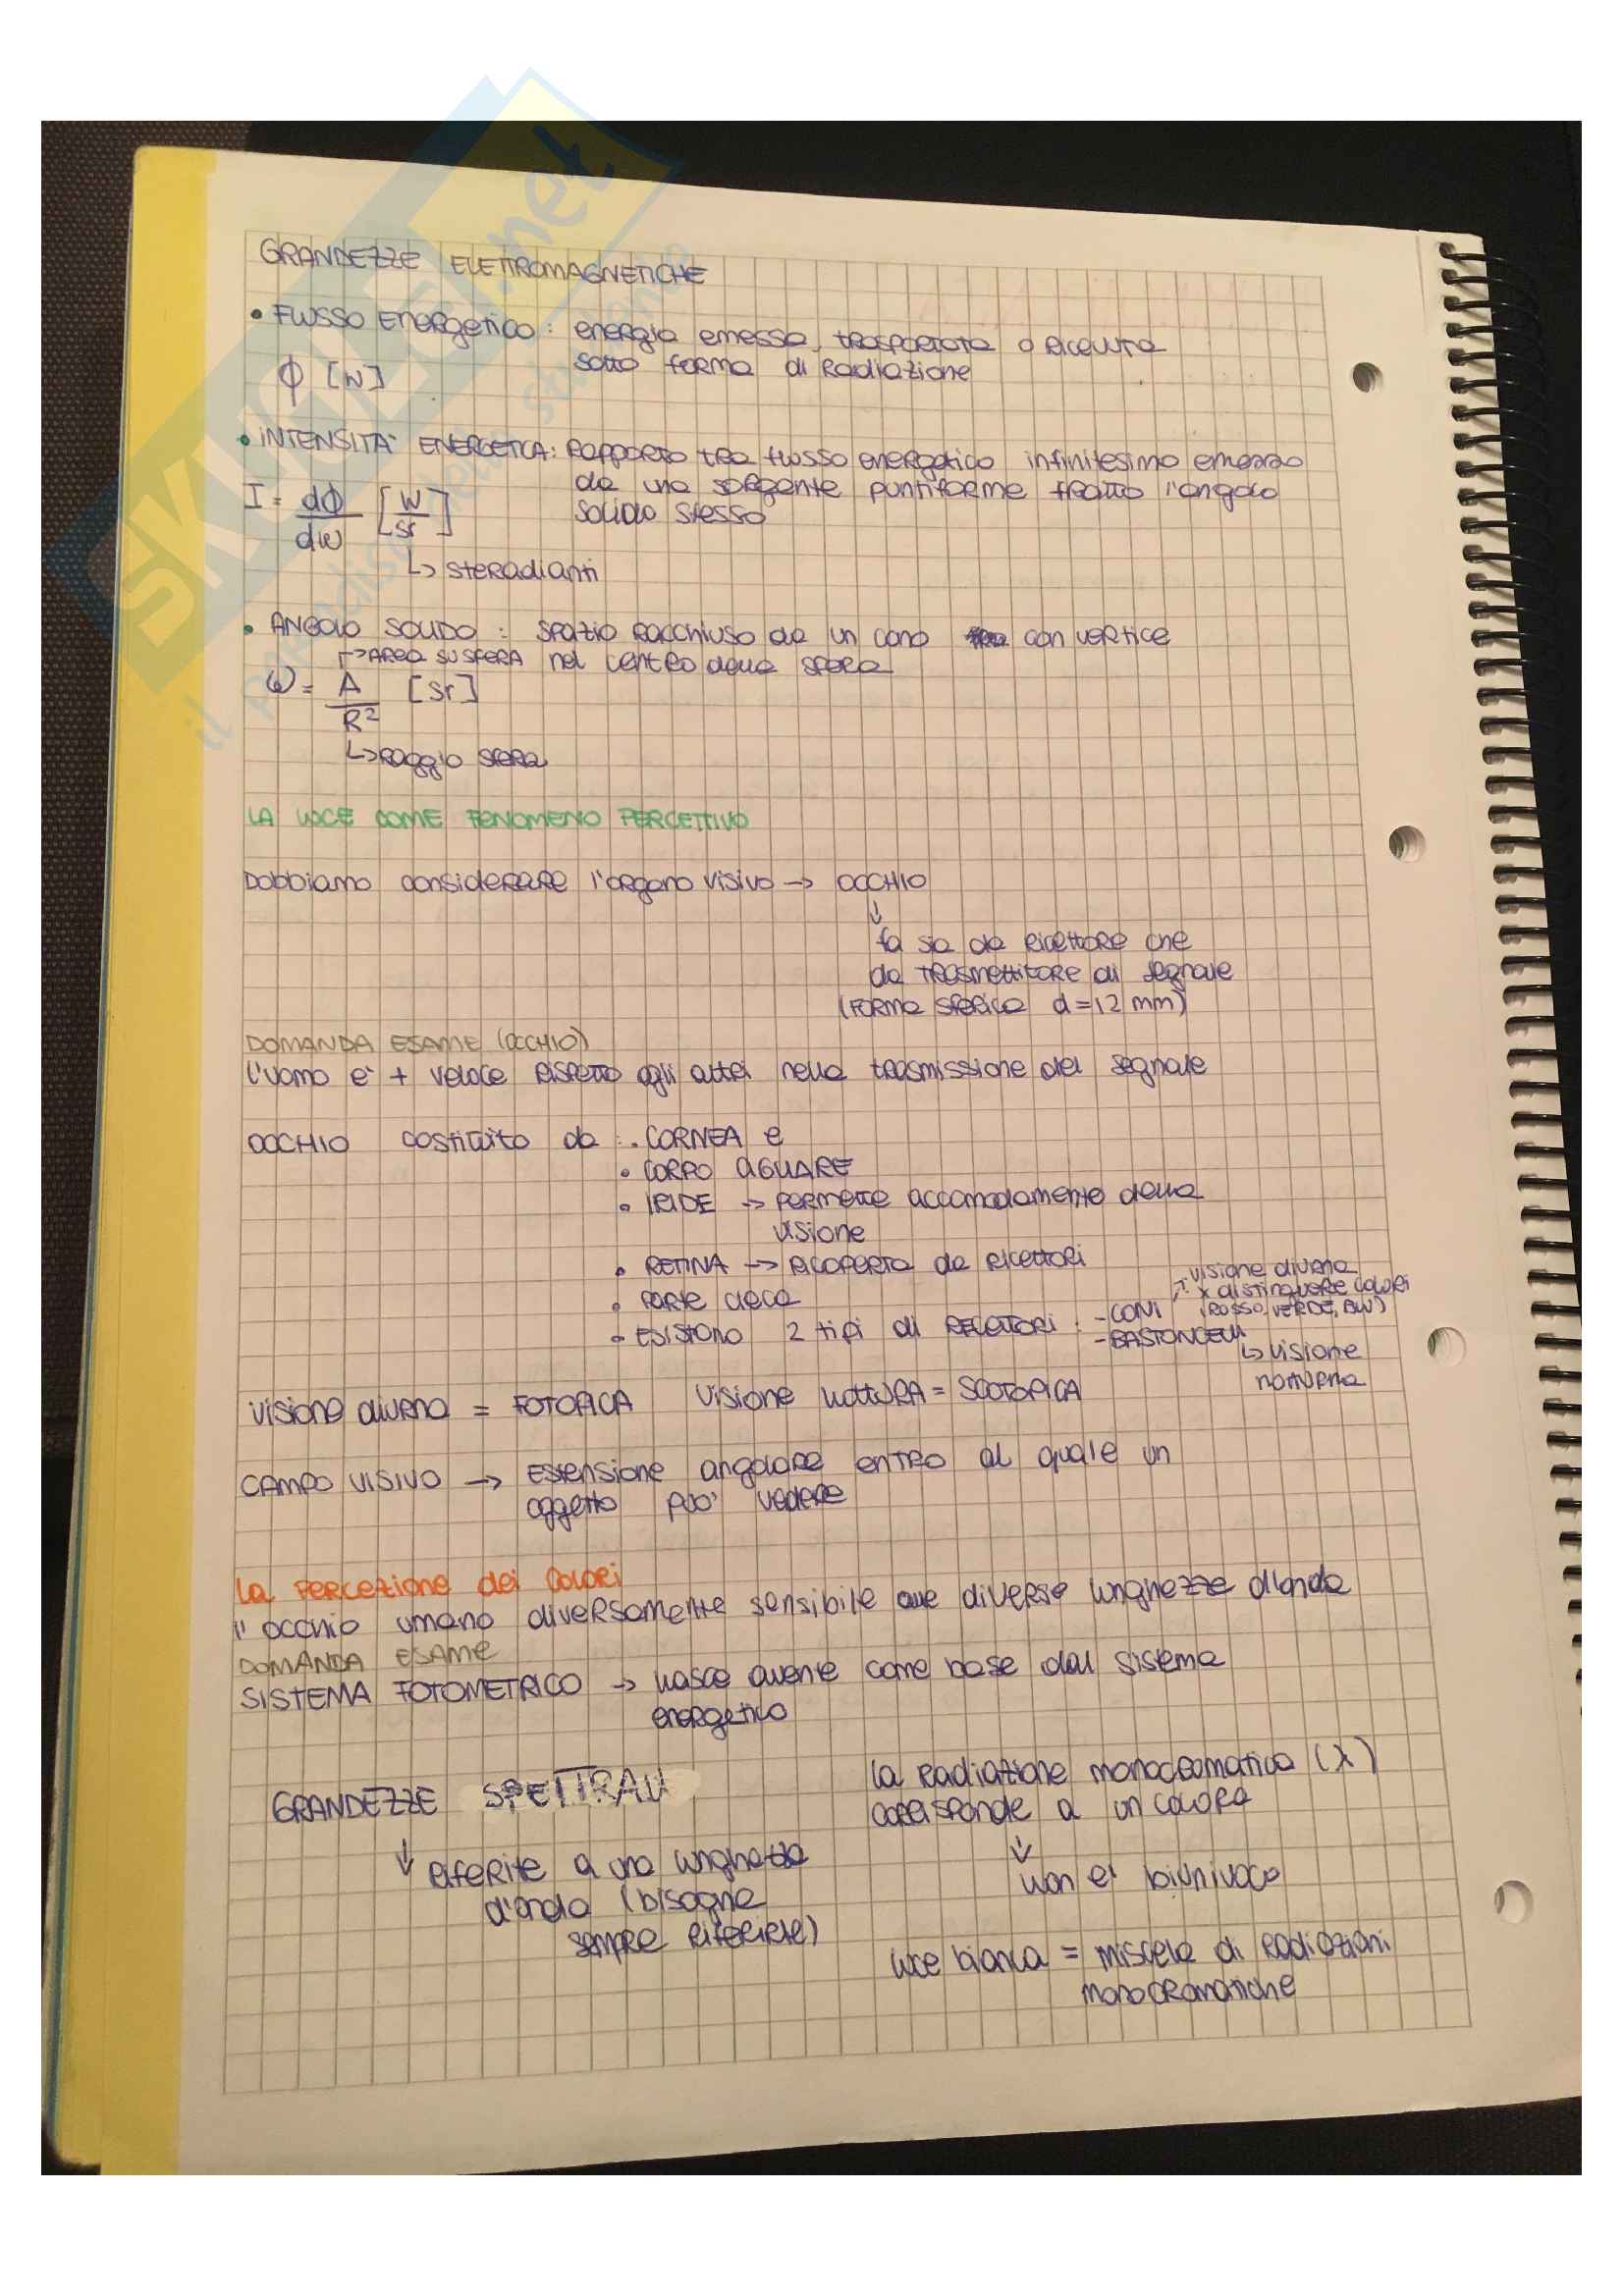 GRANDEZZE ELETTROMAGNETICHE
• FLUSSO ENERGETICO: energia emessa, trasportata o ricevuta
sotto forma di radiazione
ϕ [W]
• INTENSITA' ENERGETICA: rapporto tra flusso energetico infinitesimo emesso
da una sorgente puntiforme fratto l'angolo
solido stesso
I = dϕ/dω [W/sr]
↳ steradianti
• ANGOLO SOLIDO: spazio racchiuso da un cono con vertice
nel centro della sfera
↱ AREA SU SFERA
ω = A/R² [sr]
↳ raggio sfera
LA LUCE COME FENOMENO PERCETTIVO
Dobbiamo considerare l'organo visivo → OCCHIO
↓
fa sia da ricettore che
da trasmettitore di segnale
(forma sferica d=12 mm)
DOMANDA ESAME (OCCHIO)
L'uomo e' + veloce rispetto agli altri nella trasmissione del segnale
OCCHIO costituito da: • CORNEA e
• CORPO AQUARE
• IRIDE → permette accomodamento della
visione
• RETINA → ricoperta da ricettori
• PARTE cieca
• ESISTONO 2 tipi di RECETTORI: - CONI
↱ visione diurna
x distinguere colori
(ROSSO, VERDE, BLU)
- BASTONCELLI
↳ visione
notturna
Visione diurna = FOTOPICA Visione NOTTURA = SCOTOPICA
CAMPO VISIVO → Estensione angolare entro al quale un
oggetto può vedere
La percezione dei colori
l'occhio umano diversamente sensibile alle diverse lunghezze d'onda
DOMANDA ESAME
SISTEMA FOTOMETRICO → nasce avente come base dal sistema
energetico
GRANDEZZE SPETTRALI
↓ riferite a una lunghezza
d'onda (bisogna
sempre riferirle)
la radiazione monocromatica (λ)
corrisponde a un colore
↓
non e' biunivoco
luce bianca = miscela di radiazioni
monocromatiche
SKUOLA.net
il paradiso dello studente